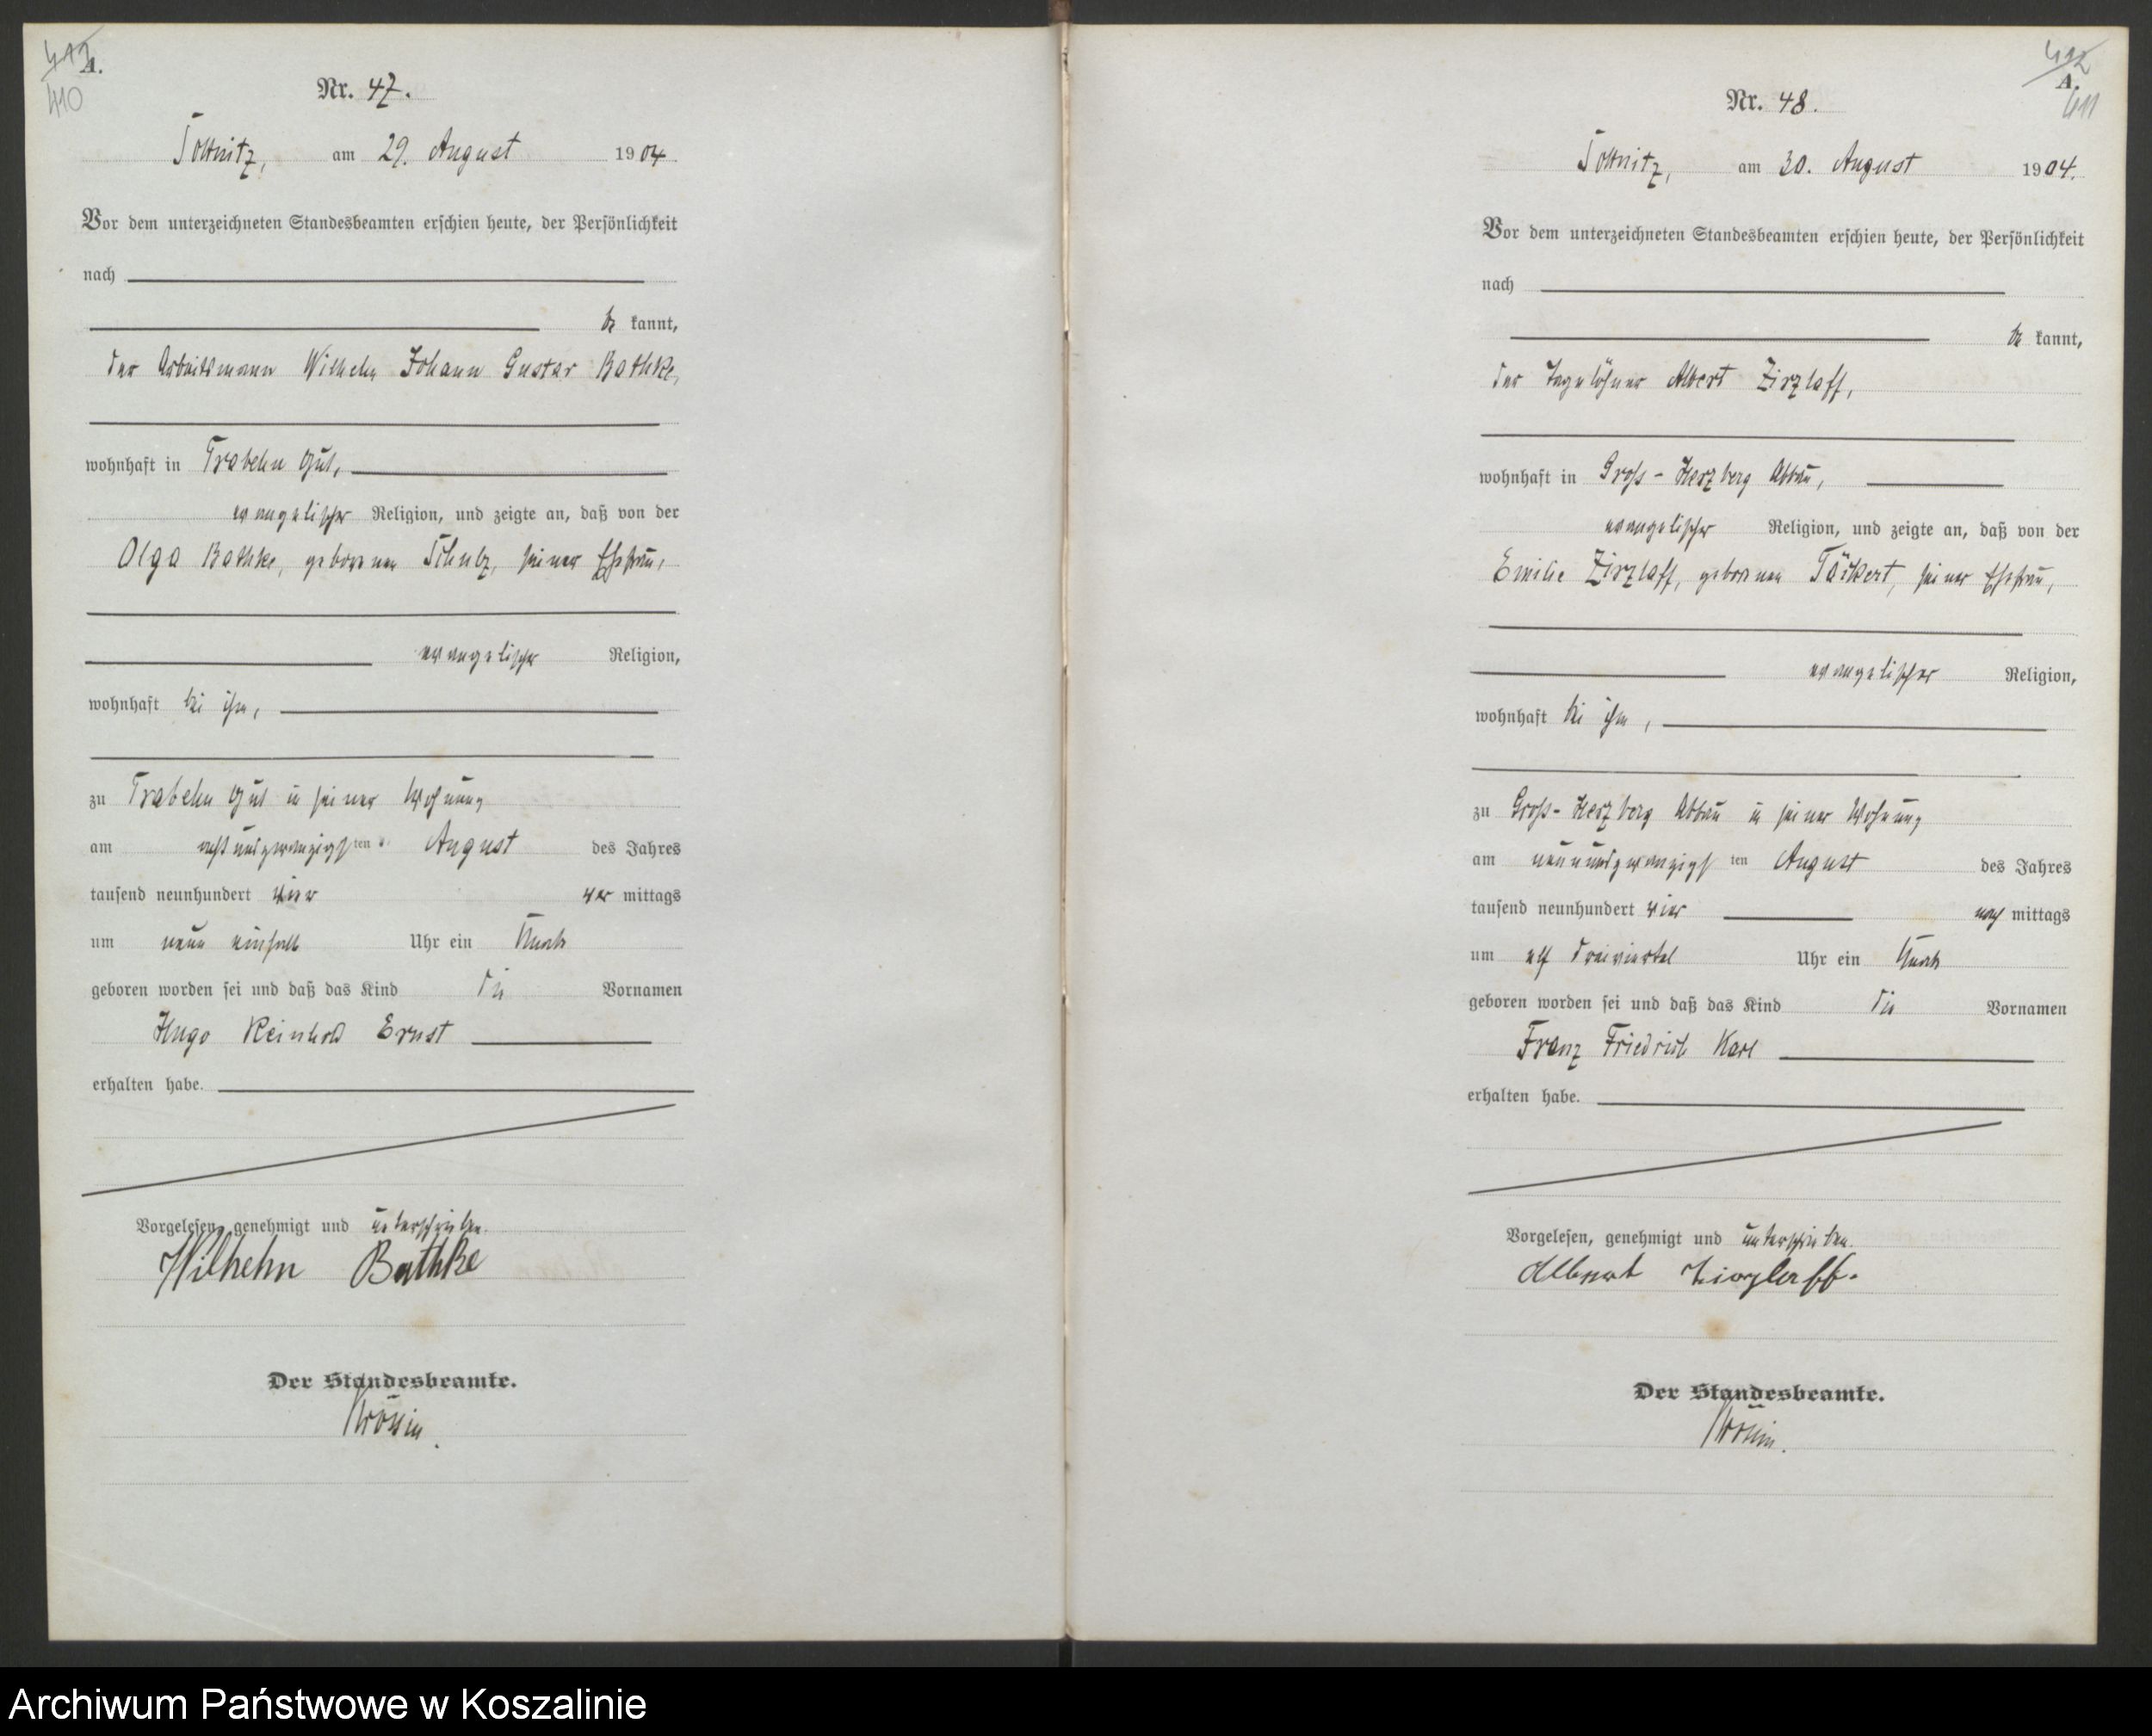 412
A.
410
Nr. 47.
am 29. August 1904
Vor dem unterzeichneten Standesbeamten erschien heute, der Persönlichkeit
nach
be kannt,
der Arbeitsmann Wilhelm Johann Gustav Bathke,
wohnhaft in Trabehn Gut,
evangelischer Religion, und zeigte an, daß von der
Olga Bathke, geborenen Schulz, seiner Ehefrau,
evangelischer Religion,
wohnhaft bei ihm,
zu Trabehn Gut in seiner Wohnung
am achtundzwanzigsten August des Jahres
tausend neunhundert vier vor mittags
um neun einhalb Uhr ein Knabe
geboren worden sei und daß das Kind die Vornamen
Hugo Reinhold Ernst
erhalten habe.
Vorgelesen, genehmigt und unterschrieben.
Wilhelm Bathke
Der Standesbeamte.
412
A.
411
Nr. 48.
am 30. August 1904.
Vor dem unterzeichneten Standesbeamten erschien heute, der Persönlichkeit
nach
be kannt,
der Tagelöhner Albert Zirzlaff,
wohnhaft in Gross-Herzberg Abbau,
evangelischer Religion, und zeigte an, daß von der
Emilie Zirzlaff, geborenen seiner Ehefrau,
evangelischer Religion,
wohnhaft bei ihm,
zu Gross-Herzberg Abbau in seiner Wohnung
am neunundzwanzigsten August des Jahres
tausend neunhundert vier nach mittags
um elf dreiviertel Uhr ein Knabe
geboren worden sei und daß das Kind die Vornamen
Franz Friedrich Karl
erhalten habe.
Vorgelesen, genehmigt und unterschrieben.
Albert Zirzlaff.
Der Standesbeamte.
Archiwum Państwowe w Koszalinie